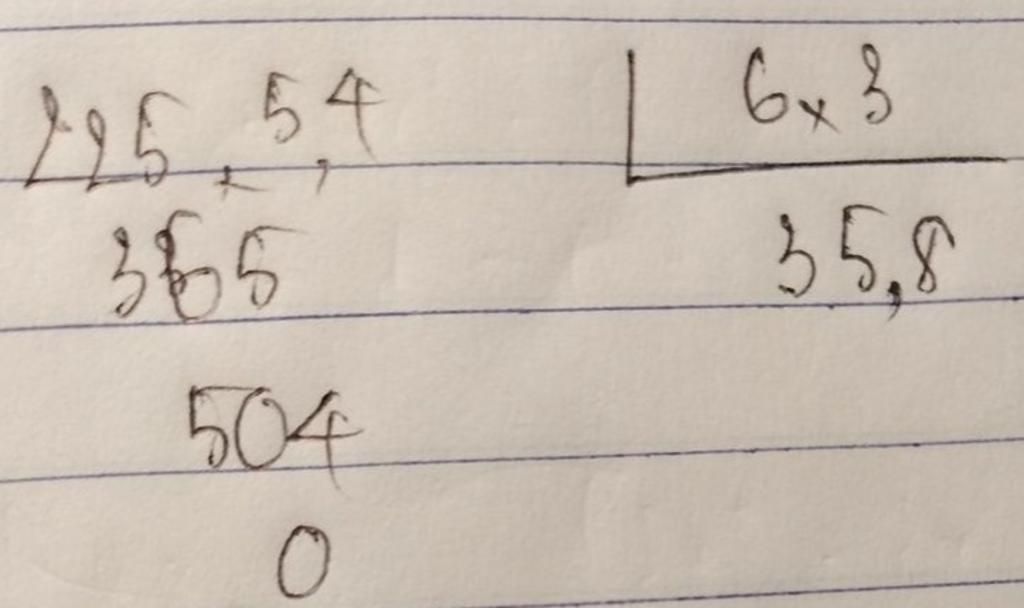 225x5,4 6x3
365 35,8
504
0